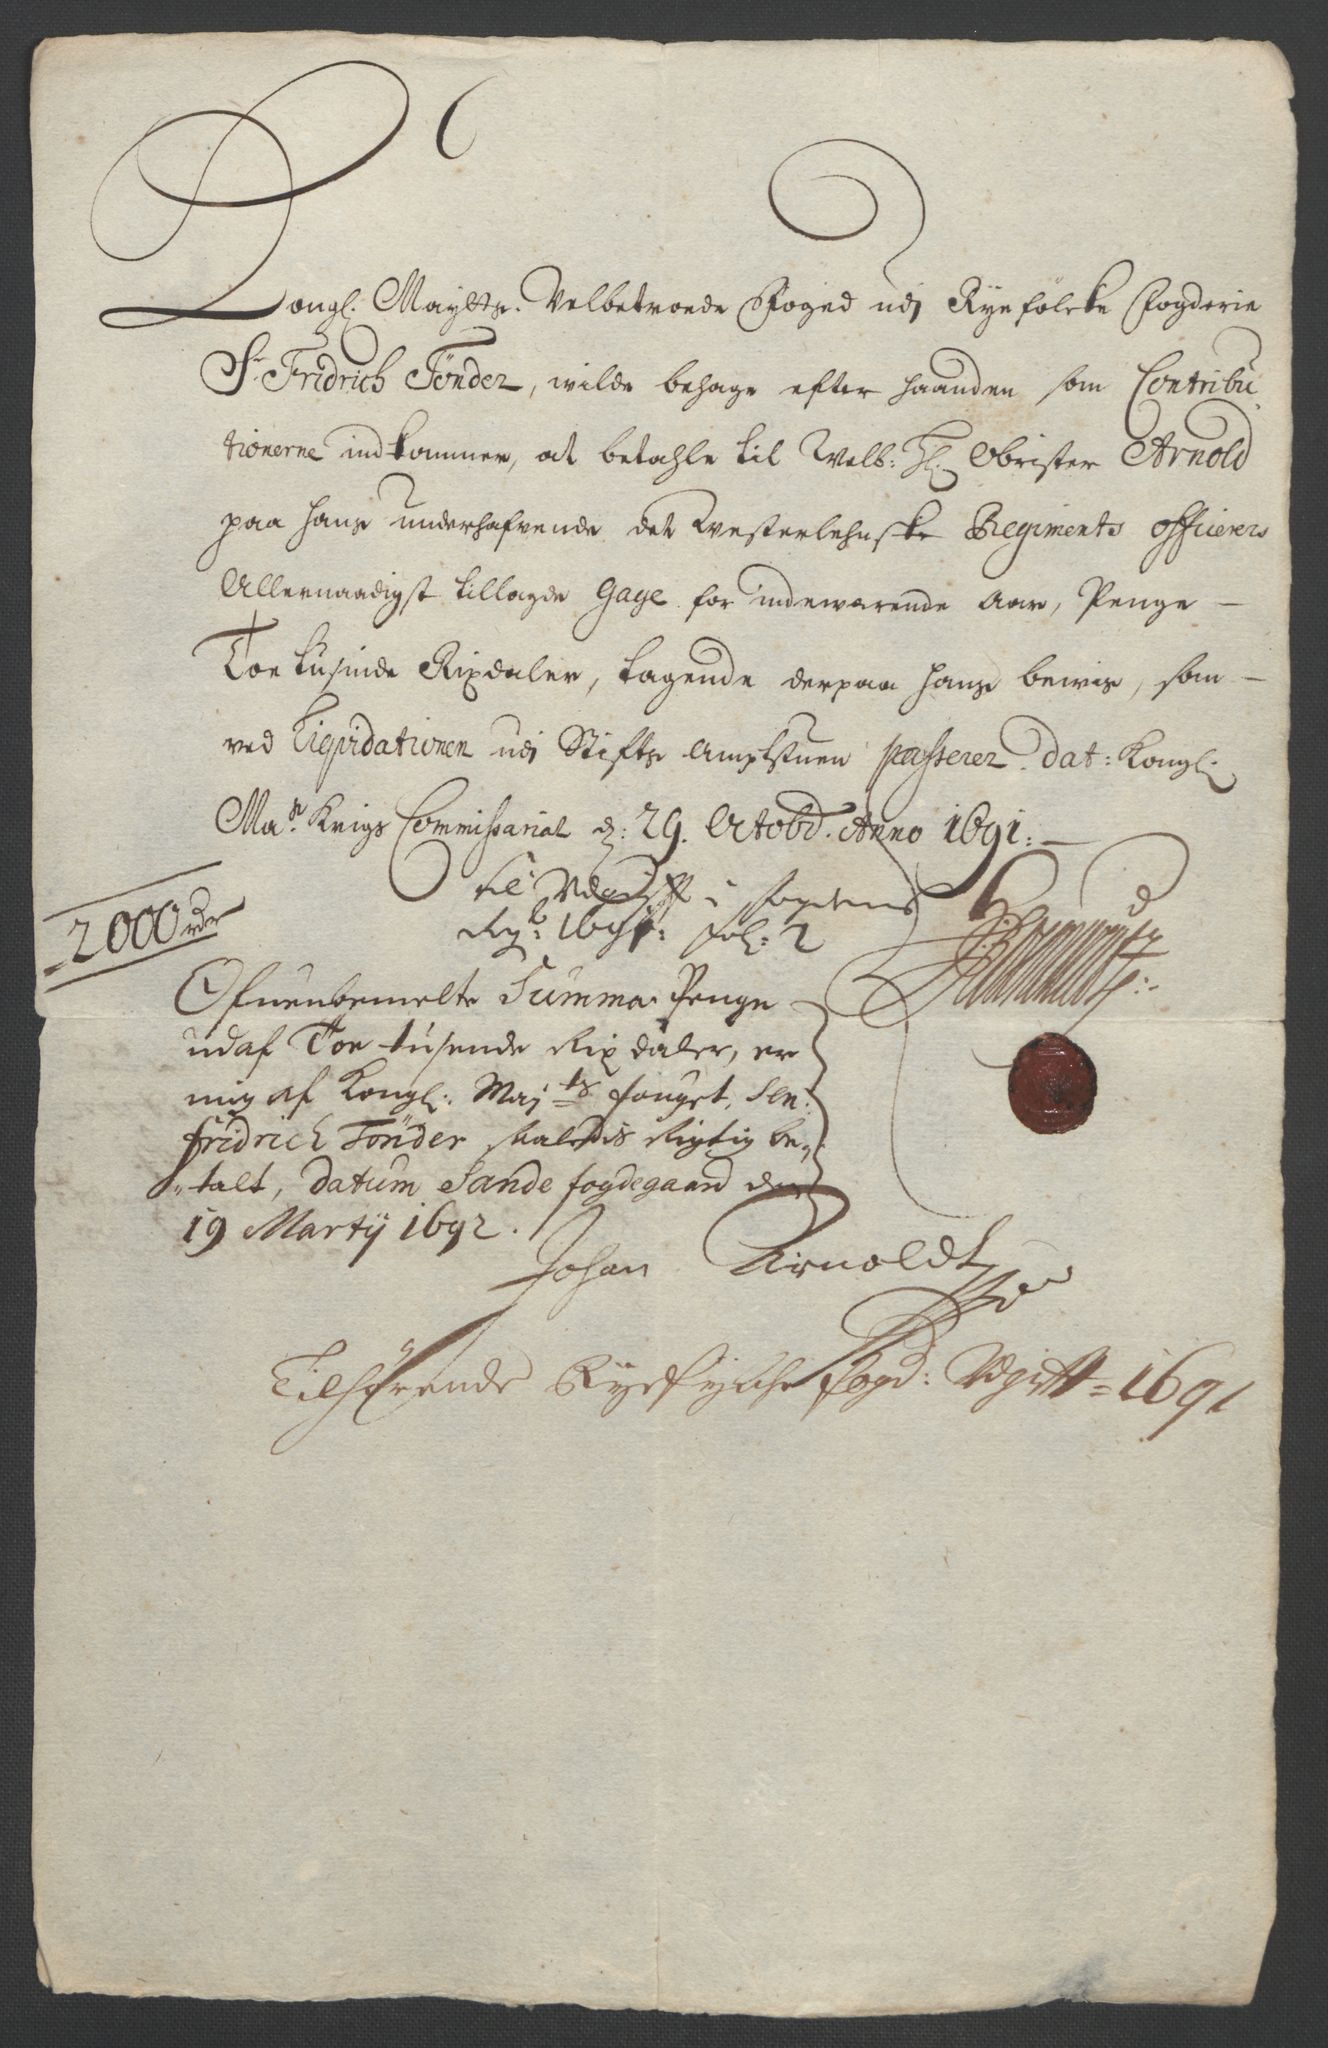 Kongl. Maÿtts. Velbetroede Foged udj Ryefölcke Fogderie
Sr. Fridrich Tönder, wilde behage efter haanden som Contribu
tionerne indkommer, at betahle til Welb: Hl. Obrister Arnold
paa hans underhafvende det Westerlehnske Regiments officerers
Allernaadigst tillagde Gage for indewærende Aar, Penge -
Toe tusinde Rixdaler, tagende derpaa hans bewis, som -
ved Liqvidationen udj Stifts Amptstuen passerer. dat: Kongl.
Mas. Krigs Commissariat d: 29. Octobr. Anno 1691. -
til Udgift i fogdens
Regb: 1691: fol: 2
2000 rdr
Ofuenbemelte Summa Penge
udaf Toe tusende Rix daler, er
mig af Kongl: Maj ts fouget, Sen:
fridrich Tönder Rigtig be,,
,,talt, datum Sande fogdegaard den
19 Martÿ 1692.
Johan Arnoldt
Tilhörende Ryefylche fogd: Udgifft = 1691